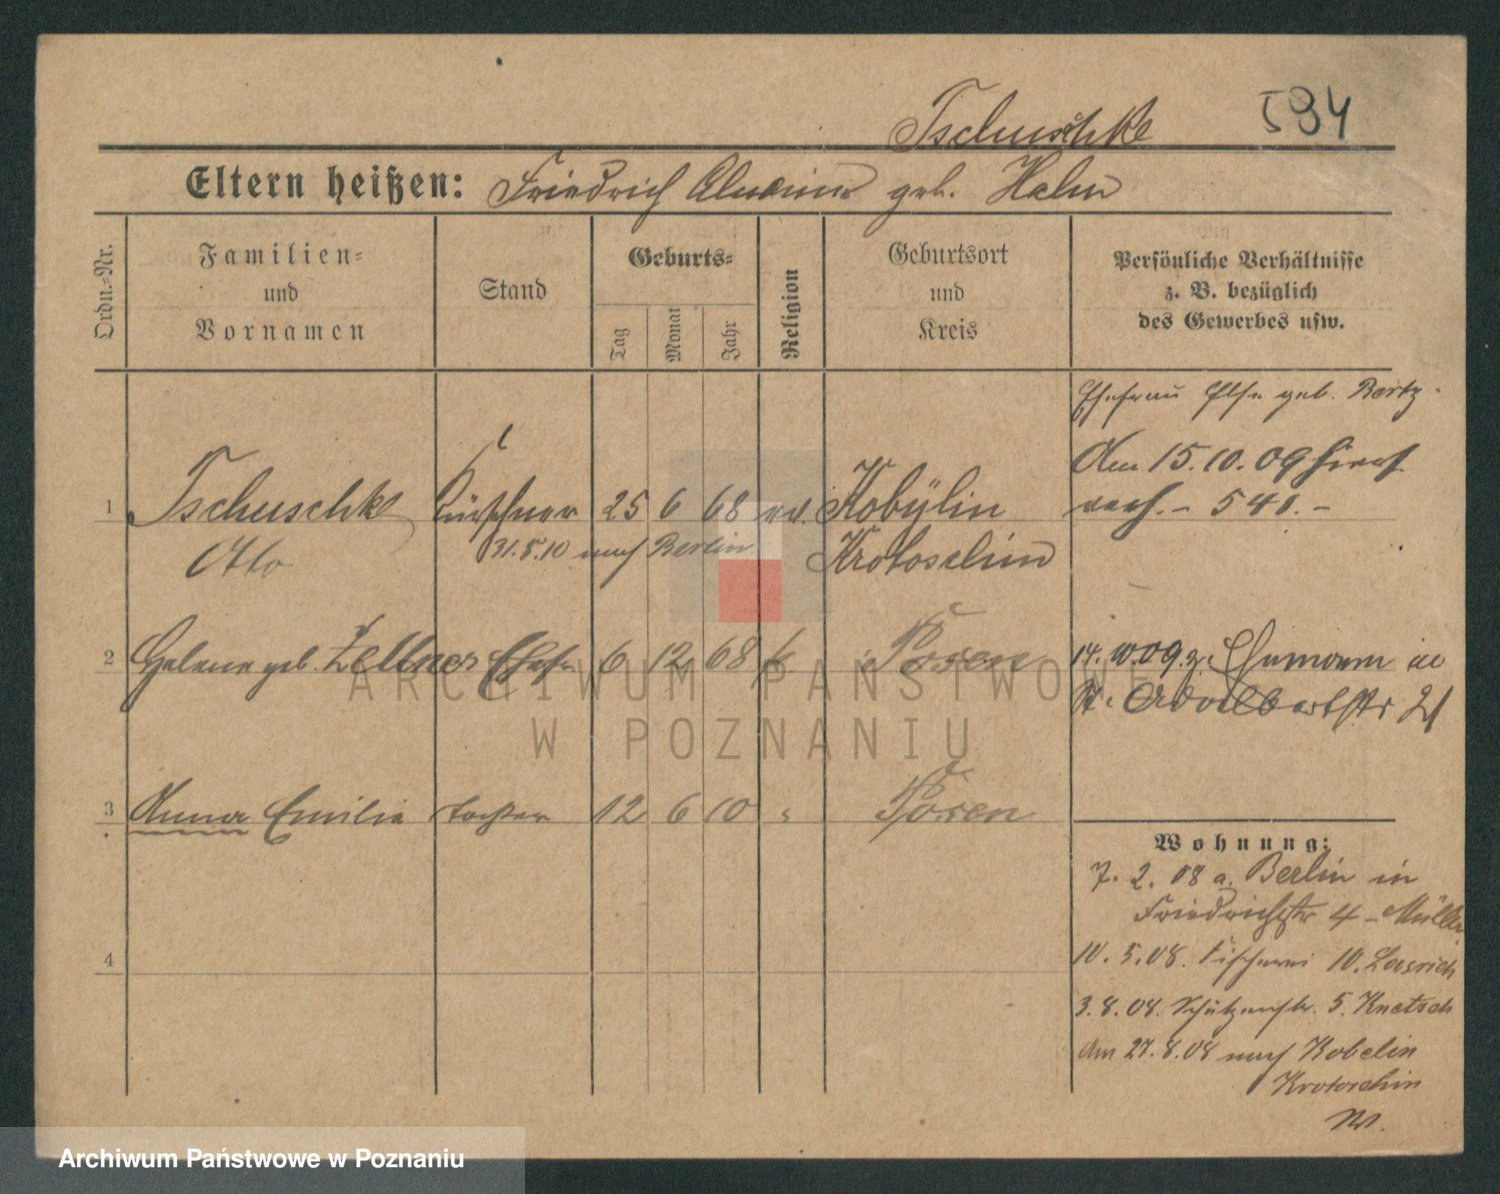 Tschuschke 594
Eltern heißen: Friedrich geb. Hahn
Ordn.-Nr.
Familien-
und
Vornamen
Stand
Geburts-
Tag
Monat
Jahr
Religion
Geburtsort
und
Kreis
Persönliche Verhältnisse
z. B. bezüglich
des Gewerbes usw.
Ehefrau Else geb.
Am 15.10.09
1 Tschuschke Kürschner 25 6 68 ev. Kobylin
nach. - 541. -
Otto
31.8.10 nach Berlin
Krotoschin
2 Helene geb. Zellner Ehefr 6 12 68 k Posen
14. 10.09 z. in
St. Adalbertstr 21
3 Anna Emilie Tochter 12 6 10 " Posen
Wohnung:
7. 2. 08 a. Berlin in
Friedrichstr 4 - Müller
4
10. 5. 08. Fischerei 10.
3. 8. 08. Schützenstr. 5. Knetsch
Am 27. 8. 08 nach Kobelin
Krotoschin
ARCHIWUM PAŃSTWOWE
W POZNANIU
Archiwum Państwowe w Poznaniu